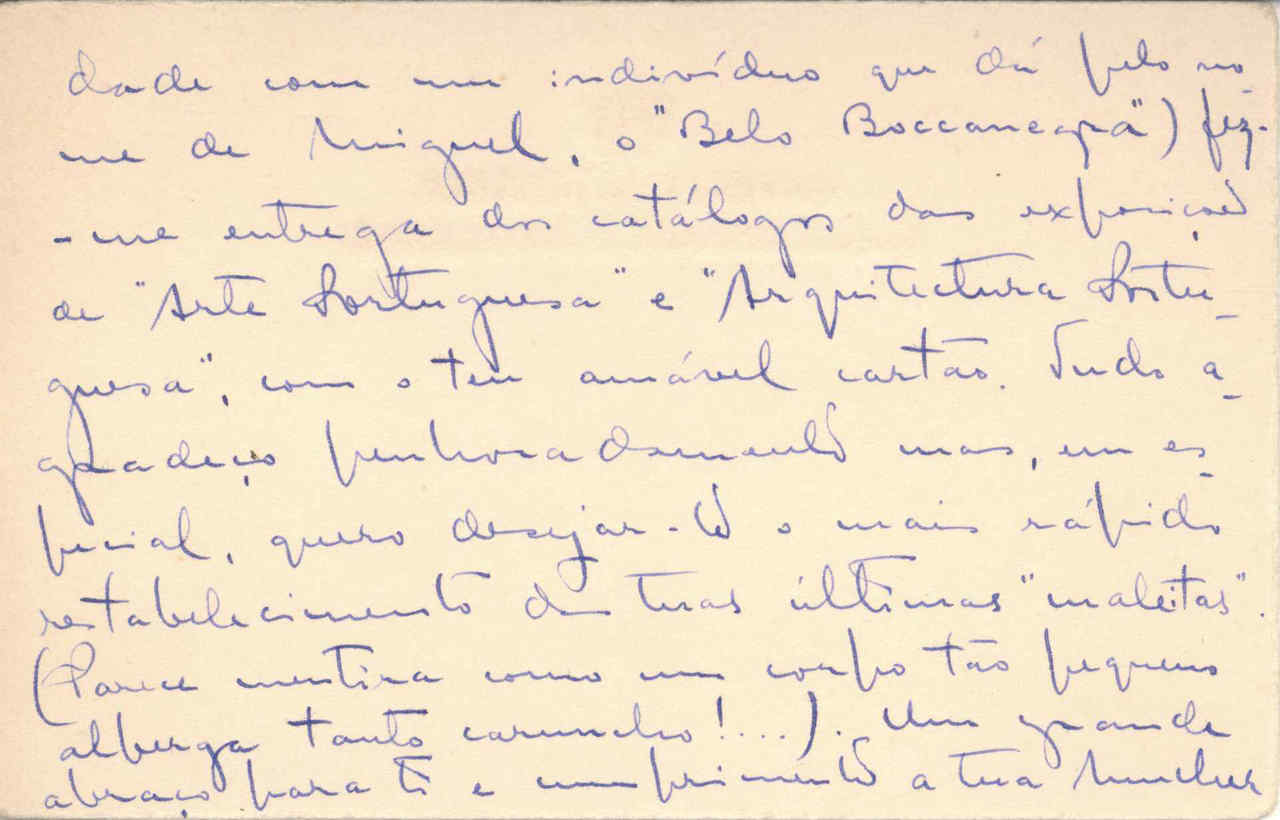 dade com um indivíduo que dá pelo no-
me de Miguel, o "Belo Boccanegra") fez-
-me entrega dos catálogos das exposições
de "Arte Portuguesa" e "Arquitectura Portu-
guesa", com o teu amável cartão. Tudo a-
gradeço penhoradamente mas, em es-
pecial, quero desejar-te o mais rápido
restabelecimento das tuas últimas "maleitas".
(Parece mentira como um corpo tão pequeno
alberga tanto caruncho!...). Um grande
abraço para ti e cumprimentos a tua Mulher